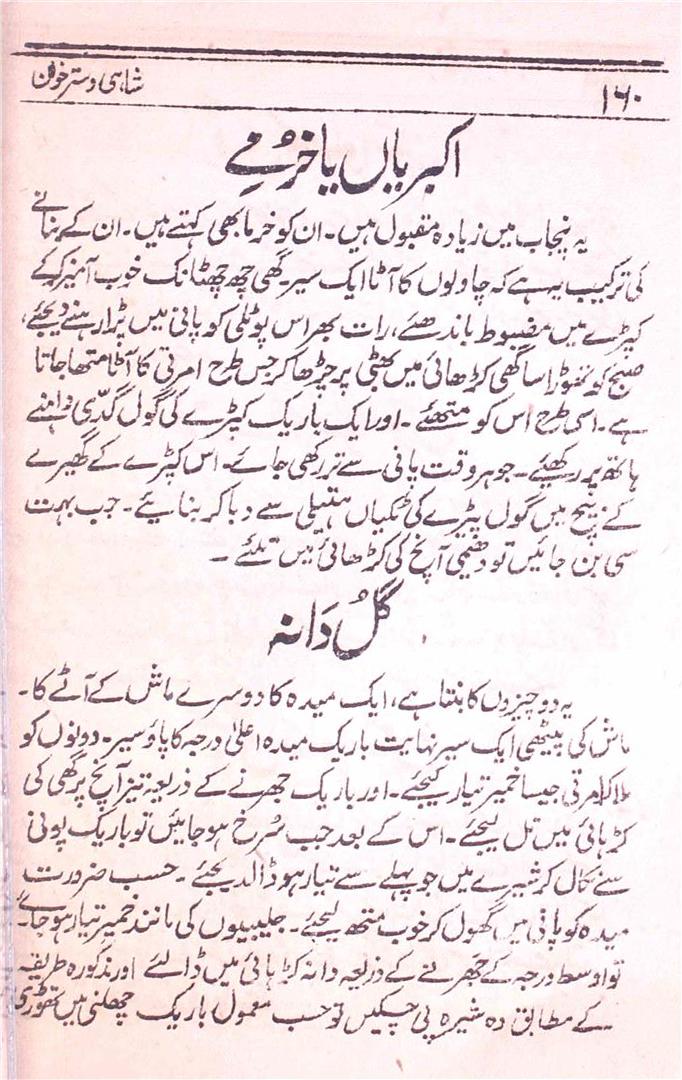 ۱۶۰
شاہی دسترخوان
اکبریاں یا خرمے
یہ پنجاب میں زیادہ مقبول ہیں۔ ان کو خرما بھی کہتے ہیں۔ ان کے بنانے
کی ترکیب یہ ہے کہ چاولوں کا آٹا ایک سیر۔ گھی چھ چھٹانک خوب آمیز کر کے
کپڑے میں مضبوط باندھئے، رات بھر اس پوٹلی کو پانی میں پڑا رہنے دیجئے،
صبح کو تھوڑا سا گھی کڑھائی میں بھٹی پر چڑھا کر جس طرح امرتی کا آٹا متھا جاتا
ہے۔ اسی طرح اس کو متھئے۔ اور ایک باریک کپڑے کی گول گدّی داہنے
ہاتھ پر رکھئے۔ جو ہر وقت پانی سے تر رکھی جائے۔ اس کپڑے کے گھیرے
کے بیچ میں گول پیڑے کی ٹکیاں ہتیلی سے دبا کر بنائیے۔ جب بہت
سی بن جائیں تو دھیمی آنچ کی کڑھائی میں تلئے۔
گُل دَانہ
یہ دو چیزوں کا بنتا ہے، ایک میدہ کا دوسرے ماش کے آٹے کا۔
ماش کی پیٹھی ایک سیر نہایت باریک میدہ اعلیٰ درجہ کا پاؤ سیر۔ دونوں کو
ملا کر امرتی جیسا خمیر تیار کیجئے۔ اور باریک جھرنے کے ذریعہ تیز آنچ پر گھی کی
کڑہائی میں تل لیجئے۔ اس کے بعد جب سُرخ ہو جائیں تو باریک پونی
سے نکال کر شیرے میں جو پہلے سے تیار ہو ڈالدیجئے۔ حسب ضرورت
میدہ کو پانی میں گھول کر خوب متھ لیجئے۔ جلیبیوں کی مانند خمیر تیار ہو جائے۔
تو اوسط درجہ کے جھرنے کے ذریعہ دانہ کڑہائی میں ڈالئے اور مذکورہ طریقہ
کے مطابق دہ شیرہ پی چکیں تو حسب معمول باریک چھلنی میں تھوڑی